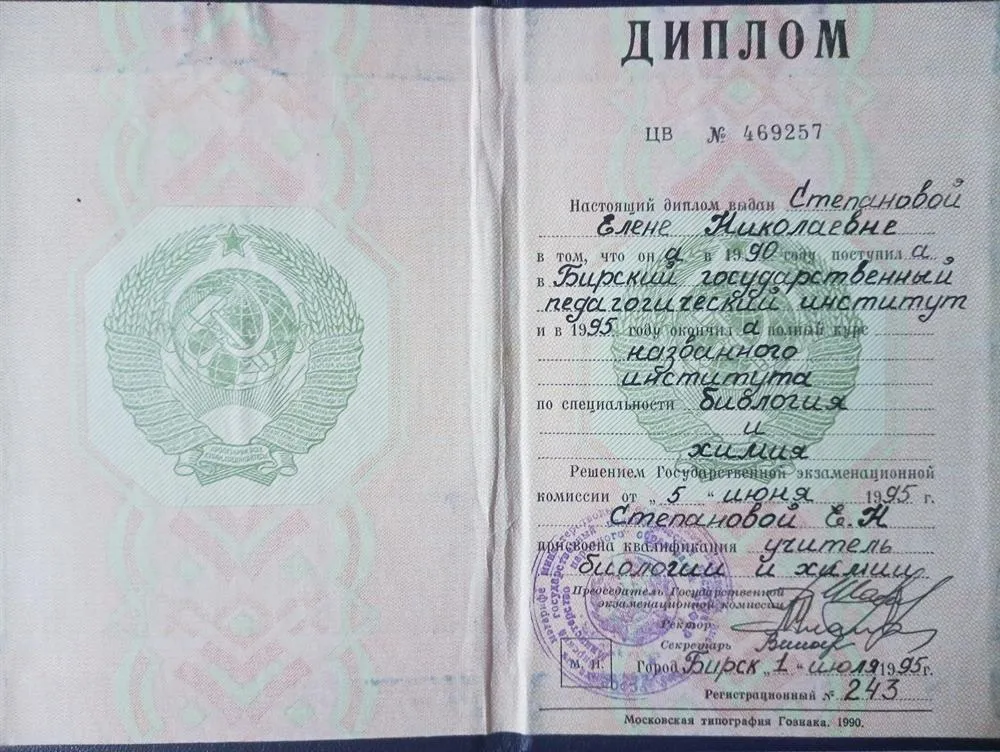 ДИПЛОМ
ЦВ № 469257
Настоящий диплом выдан Степановой
Елене Николаевне
в том, что он а в 1990 году поступил а
в Бирский государственный
педагогический институт
и в 1995 году окончил а полный курс
названного
института
по специальности биология
и
химия
Решением Государственной экзаменационной
комиссии от „ 5 “ июня 1995 г.
Степановой Е.Н
присвоена квалификация учитель
биологии и химии
Председатель Государственной
экзаменационной комиссии
Ректор
Секретарь
М. П. Город Бирск „ 1 “ июля 1995г.
Регистрационный № 243
Московская типография Гознака. 1990.